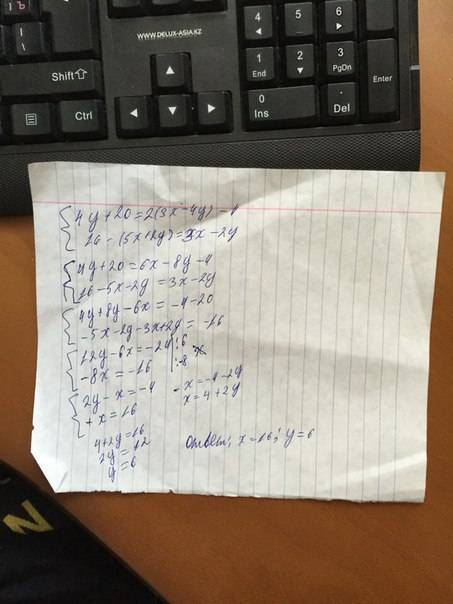 WWW.DELUX-ASIA.KZ
Ъ
Shift
Ctrl
4
5
6
1
End
2
3
PgDn
Enter
0
Ins
.
Del
4y+20=2(3x-4y)-4
16-(5x+2y)=3x-2y
4y+20=6x-8y-4
16-5x-2y=3x-2y
4y+8y-6x=-4-20
-5x-2y-3x+2y=-16
12y-6x=-24 |:6
-8x=-16 |:-8
2y-x=-4 -x=-4-2y
+x=16 x=4+2y
4+2y=16
2y=12
y=6
Ответ: x=16; y=6
N